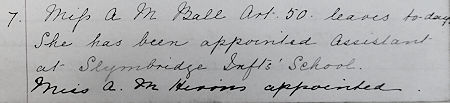 7. Miss A M Ball Art. 50. leaves to-day
She has been appointed Assistant
at Slymbridge Infts' School.
Miss A. M appointed.